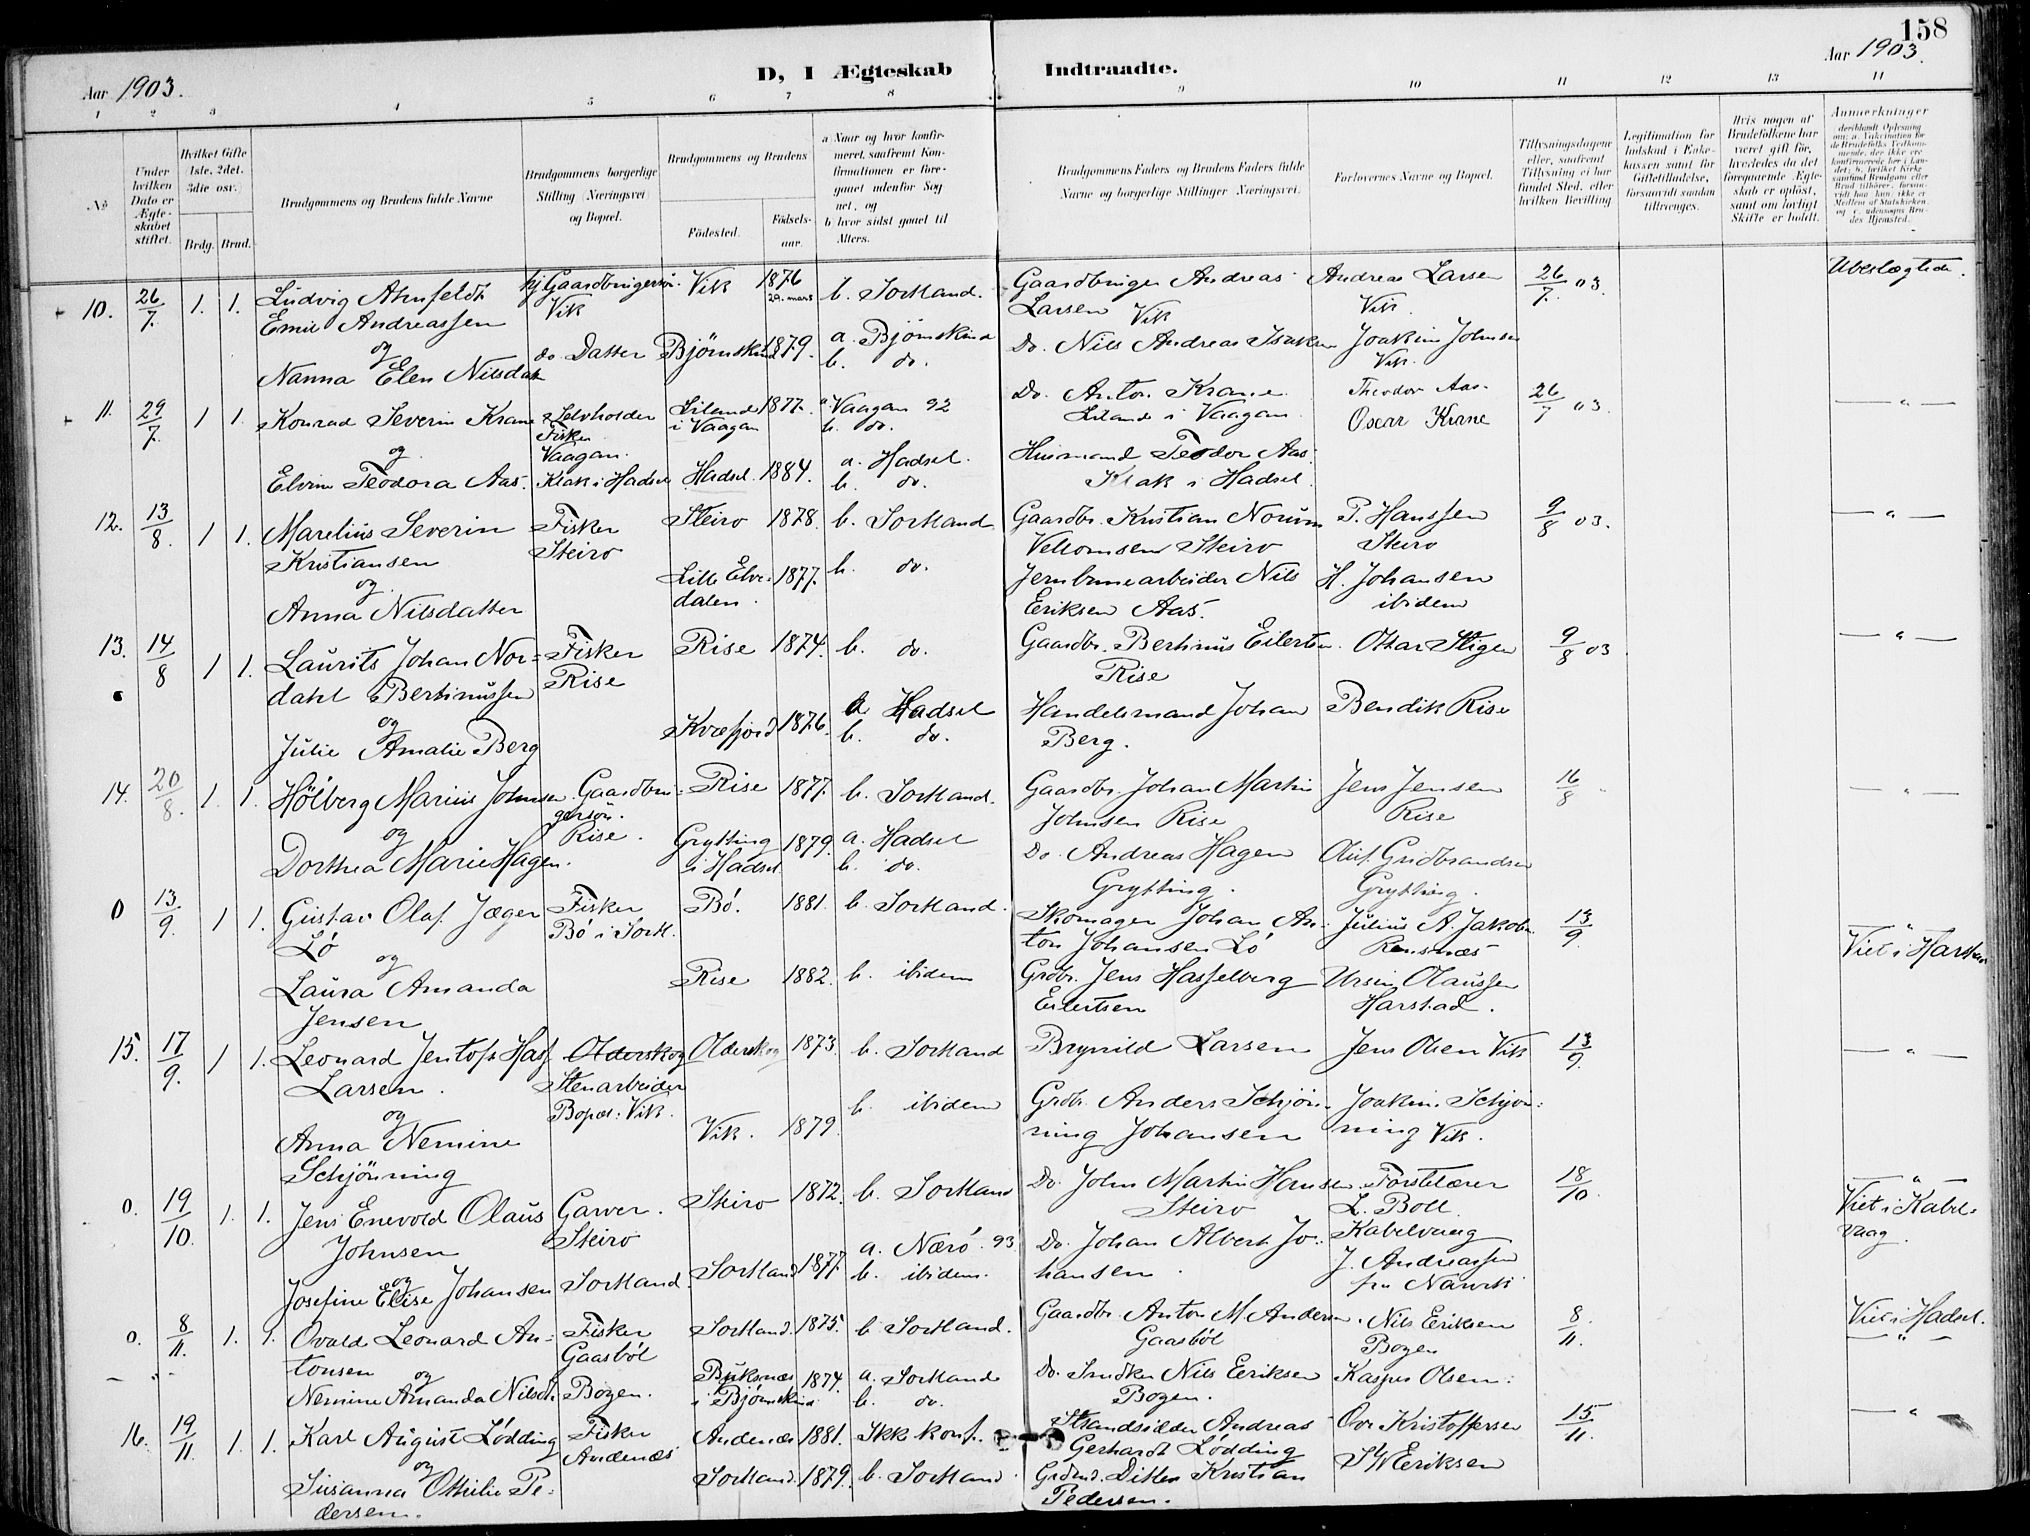 158
Aar 1903.
D, I Ægteskab Indtraadte.
Aar 1903.
1 2 3 4 5 6 7 8 9 10 11 12 13 14
No
Under hvilken Dato er Ægteskabet stiftet.
Hvilket Gifte (1ste, 2det, 3die osv.)
Brdg. Brud.
Brudgommens og Brudens fulde Navne
Brudgommens borgerlige Stilling (Næringsvei) og Bopæl.
Brudgommens og Brudens
Fødested.
Fødselsaar.
a Naar og hvor konfirmeret, saafremt Konfirmationen er foregaaet udenfor Sognet, og
b hvor sidst gaaet til Alters.
Brudgommens Faders og Brudens Faders fulde Navne og borgerlige Stillinger (Næringsvei.
Forlovernes Navne og Bopæl.
Tillysningsdagene eller, saafremt Tillysning ei har fundet Sted, efter hvilken Bevilling
Legitimation for Indskud i Enkekassen samt for Giftetilladelse, forsaavidt saadan tiltrænges.
Hvis nogen af Brudefolkene har været gift før, hvorledes da det foregaaende Ægteskab er opløst, samt om lovligt Skifte er holdt.
Anmærkninger
10. 26/7. 1. 1. Ludvig Ahnfeldt Emil Andreassen
og
Nanna Elen Nilsdatt
Gaardbrugersøn. Vik
do. Datter
Vik 1876 29. mars b. Sortland.
Bjørnskind 1879. a. Bjørnskind b. do.
Gaardbruger Andreas Larsen Vik
Do. Nils Andreas Isaksen
Andreas Larsen Vik.
Joakim Johnsen Vik.
26/7. 03.
Ubeslægtede.
11. 29/7. 1 1. Konrad Severin Krane
og
Elvine Teodora Aas.
Selvholder Fisker Vaagan.
Krak i Hadsel
Liland i Vaagan 1877. a Vaagan 92 b. do.
Hadsel. 1884. a. Hadsel. b. do.
Do. Anton Krane Liland i Vaagan.
Husmand Teodor Aas. Krak i Hadsel.
Theodor Aas.
Oscar Krane
26/7 03.
— " —
12. 13/8. 1 1. Marelius Severin Kristiansen
og
Anna Nilsdatter
Fisker Steiro
Steiro 1878. b. Sortland
Lille Elvedalen. 1877. b. do.
Gaardbr. Kristian Norum Vellomsen Steiro
Jernbanearbeider Nils Eriksen Aas.
P. Hanssen Steiro
H. Johansen ibidem
9/8 03.
— " —
13. 14/8 1 1. Laurits Johan Nordahl Bertinussen
og
Julie Amalie Berg
Fisker Rise
Rise 1874. b. do.
Kvæfjord 1876. a. Hadsel b. do.
Gaardbr. Bertinus Eilertsen. Rise
Handelsmand Johan Berg.
Ottar Stigen
Bendik Rise
9/8 03
— " —
14. 20/8. 1 1. Hölberg Marius Johnsen
og
Dorthea Marie Hagen.
Gaardbrugersøn. Rise.
Rise 1877. b. Sortland.
Grytting i Hadsel 1879. a. Hadsel b. do.
Gaardbr. Johan Martin Johnsen Rise
Do. Andreas Hagen Grytting.
Jens Jensen Rise
Oluf Gudbrandsen Grytting.
16/8 "
— " —
0 13/9. 1 1. Gustav Olaf Jæger Lø
og
Laura Amanda Jensen
Fisker Bø i Sortl.
Bø. 1881. b. Sortland.
Rise 1882. b. ibidem
Skomager Johan Anton Johansen Lø
Grdbr. Jens Hasselberg Eilertsen
Julius A. Jakobs. Rensnæs
Ursin Olaussen Harstad.
13/9.
— " —
Viet i Harstad
15. 17/9. 1 1. Leonard Jentoft Hass Larsen.
og
Anna Nemine Schjönning
Olderskog Stenarbeider Bopæl: Vik.
Olderskog 1873. b. Sortland
Vik. 1879. b. ibidem
Brynild Larsen
Grdbr. Anders Schjönning Johansen
Jens Olsen Vik
Joakim Schjönning Vik.
13/9.
— " —
0. 19/10. 1. 1. Jens Enevold Olaus Johnsen
og
Josefine Elise Johansen
Garver. Steiro
Sortland.
Steiro 1872. b. Sortland
Sortland 1877. a. Nærø. 93 b. ibidem.
Do. John Martin Hansen. Steiro
Do. Johan Albert Johansen.
Førstelærer L. Boll. Kabelvaag
J. Andreassen fra Narvik
18/10.
— " —
Viet i Kabelvaag.
0. 8/11. 1. 1. Ovald Leonard Antonsen
og
Nemine Amanda Nilsdt
Fisker Gaasbøl
Bogen.
Sortland. 1875. b. Sortland.
Buksnæs i Bjørnskind 1874. a. Sortland b. do.
Gaardbr. Anton M. Andersen. Gaasbøl
Do. Smdkr Nils Eeriksen Bogen.
Nils Eriksen Bogen
Kasper Olsen.
8/11.
Viet i Hadsel.
— " —
16. 19/11. 1. 1. Karl August Lødding
og
Susanna Othilie Pedersen.
Fisker Andenæs
Andenæs 1881. Ikke konf.
Sortland. 1879. b. Sortland.
Strandsidder Andreas Gerhardt Lødding
Grdmd. Ditlev Kristian Pedersen.
Ove Kristoffersen
S W Eeriksen
15/11.
— " —